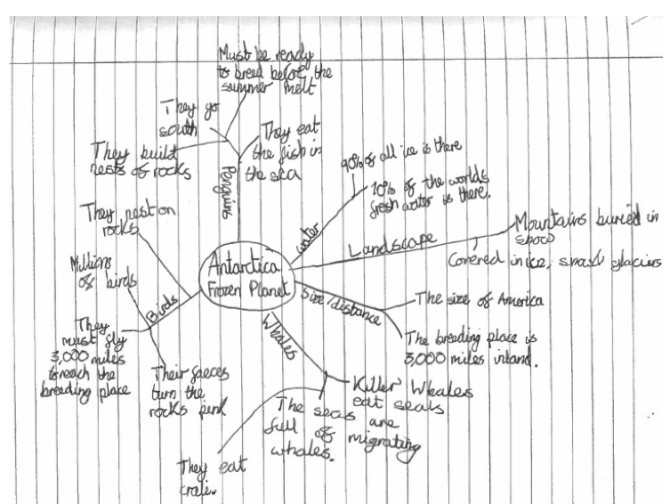 Antarctica
Frozen Planet
Penguins
Must be ready
to breed before the
summer melt
They go
south
They build
nests of rocks
They eat
the fish in
the sea
water
90% of all ice is there
70% of the worlds
fresh water is there.
Landscape
Mountains buried in
snow
Covered in ice, snow, glaciers
Size/distance
The size of America
The breeding place is
3,000 miles inland.
Whales
Killer Whales
eat seals
The seas are
full of migrating
whales.
They eat
Birds
They nest on
rocks
Millions
of birds
They
must fly
3,000 miles
to reach the
breeding place
Their faeces
turn the
rocks pink